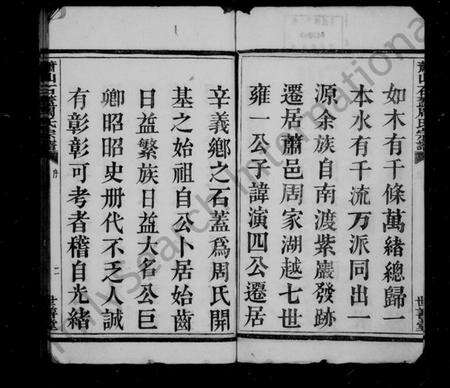 如木有千條萬緒總歸一
本水有千流万派同出一
源余族自南渡紫巖發跡
遷居蕭邑周家湖越七世
雍一公子諱演四公遷居
辛義鄉之石蓋爲周氏開
基之始祖自公卜居始齒
日益繁族日益大名公巨
卿昭昭史册代不乏人誠
有彰彰可考者稽自光緒
蕭山石蓋周氏宗譜
二
世善堂